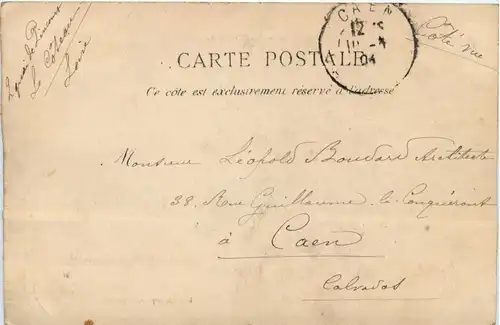 Le Coteau
Loire
CAEN
12
04
Côté vue
CARTE POSTALE
Ce côté est exclusivement réservé à l'adresse
Monsieur Léopold Boudard Architecte
38. Rue Guillaume le Conquérant
à
Caen
Calvados